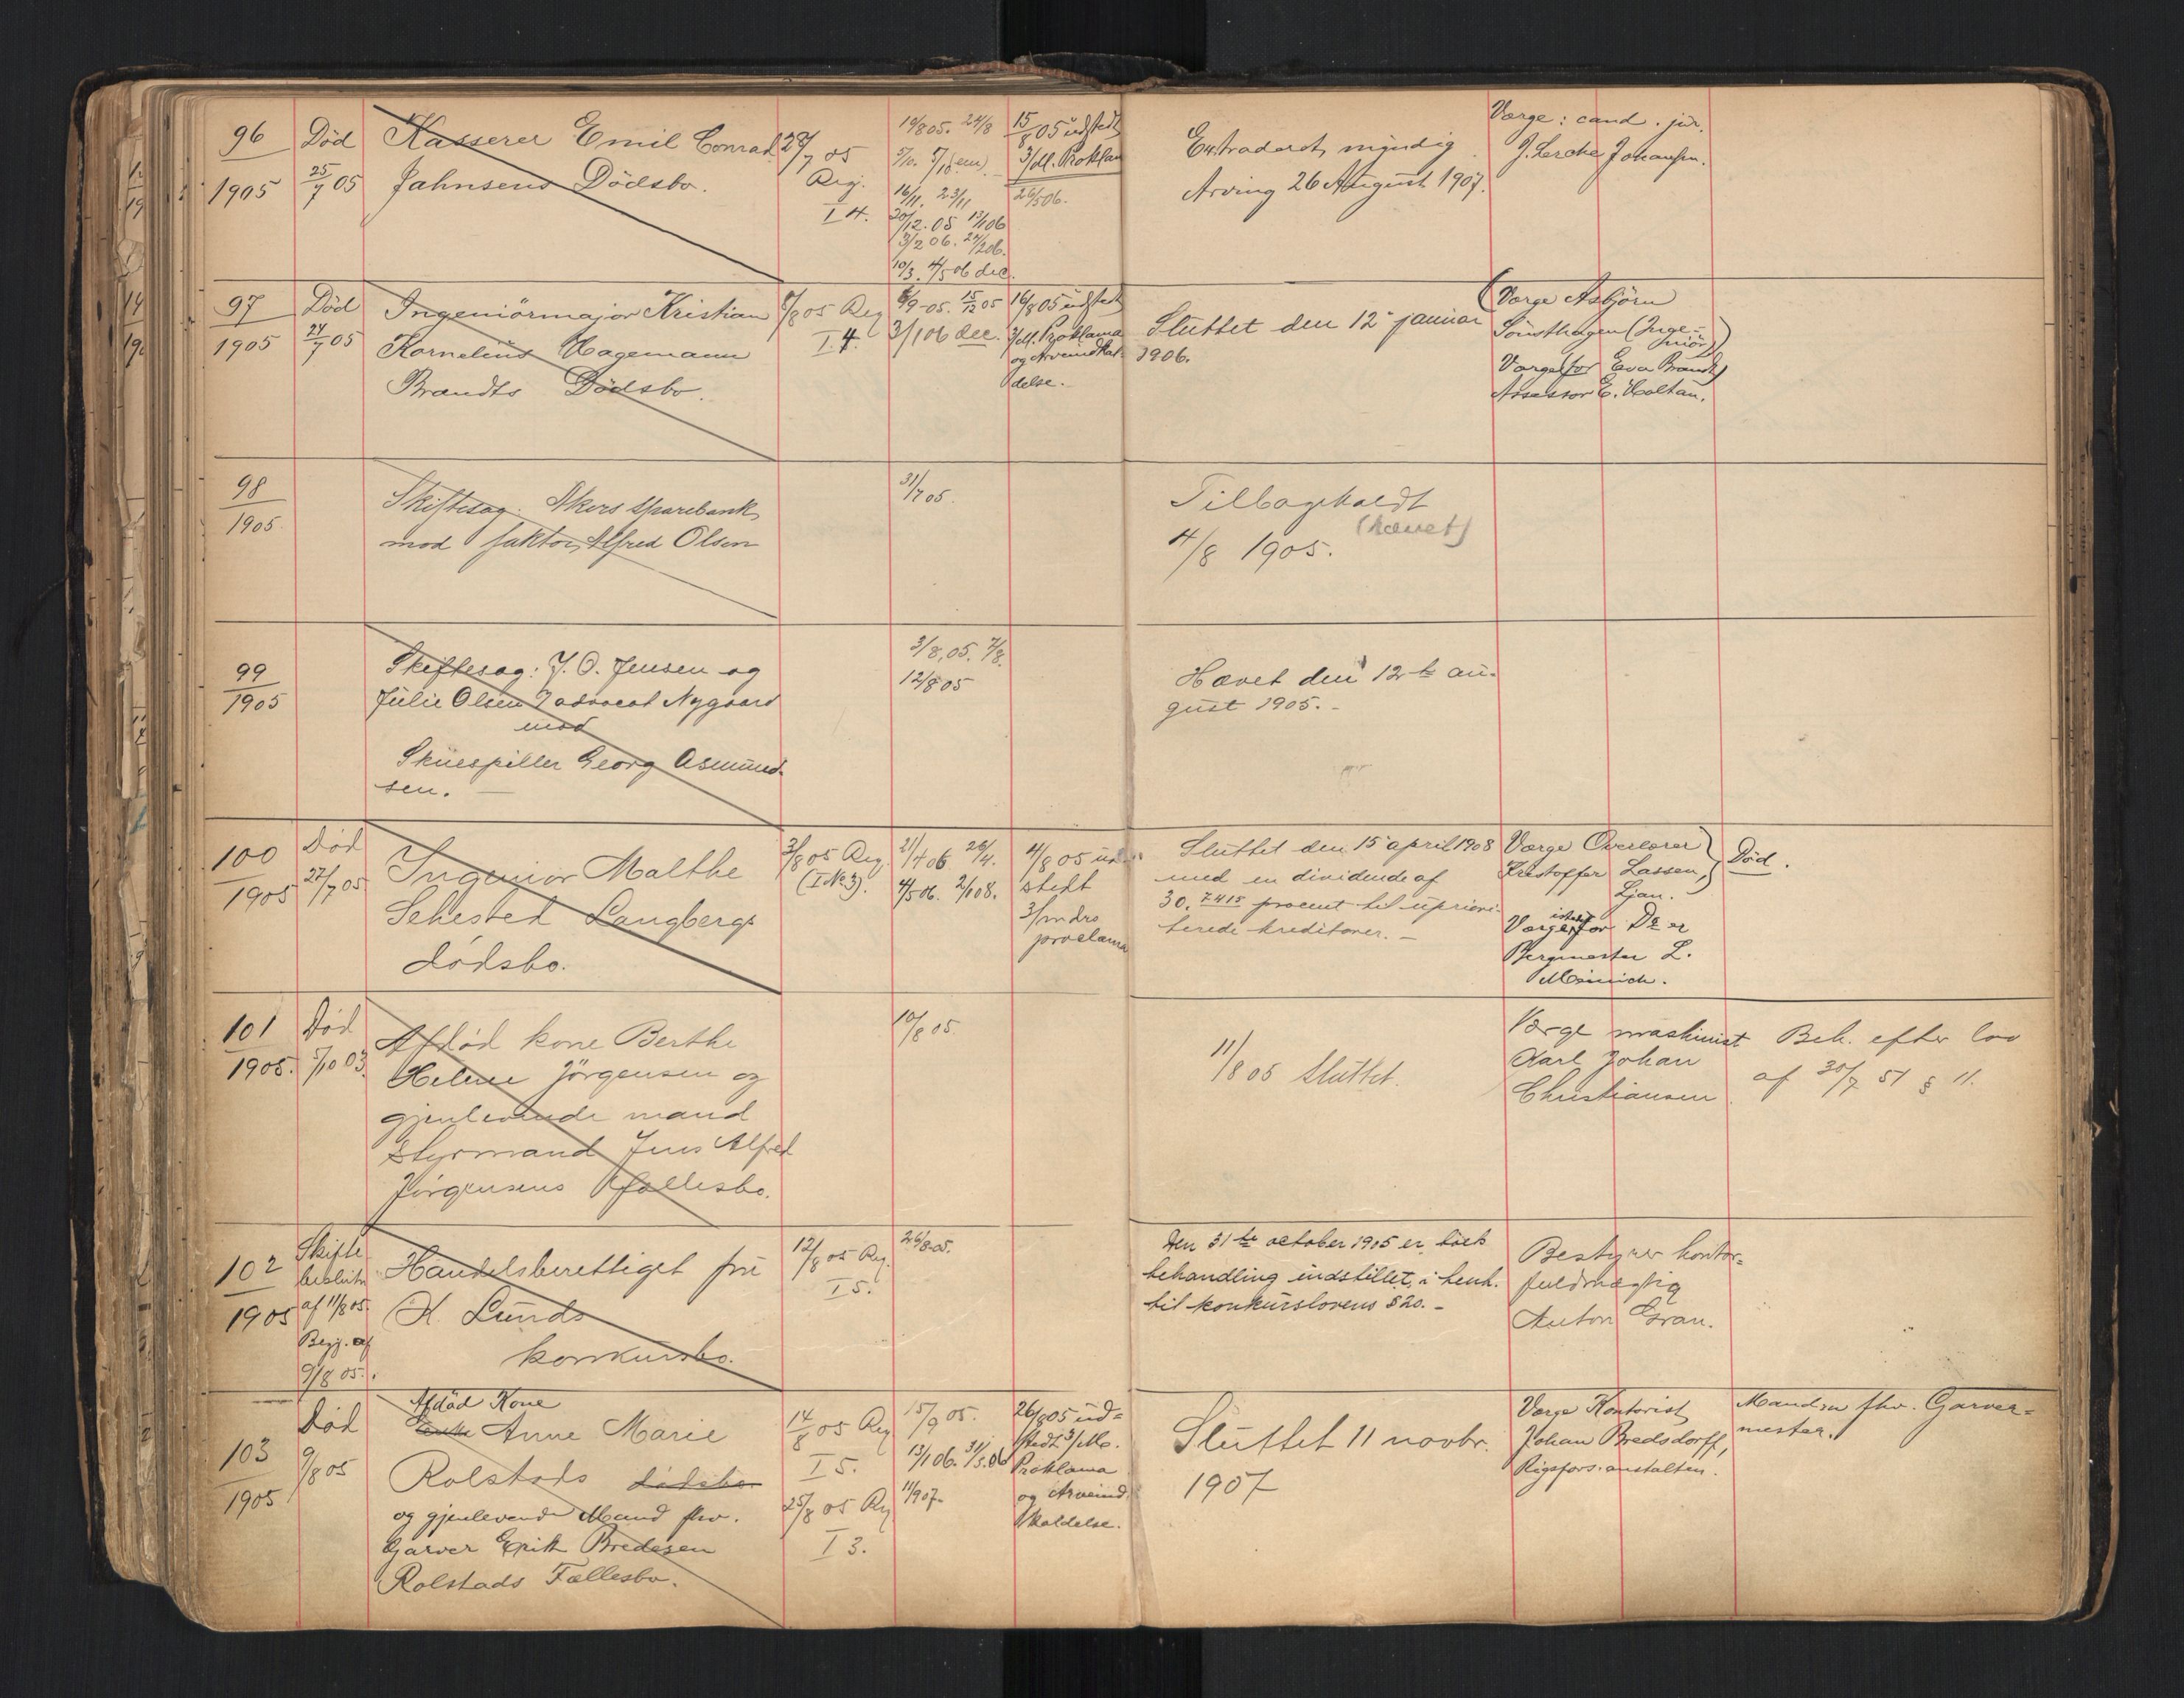 96
1905
Død
25/7 05
Kasserer Emil Conrad
Jahnsens Dödsbo.
28/7 05
Reg.
I 4.
19/8 05. 24/8
16/11. 23/11
20/12. 05 13/1 06
3/2 06. 24/2 06.
10/3. 4/5 06 dec.
15/8 05 udstedt
3/M. Proklam
26/5 06.
Extraderet myndig
Arving 26 August 1907.
Værge: cand. jur.
J. Lerche Johansen.
97
1905
Død
24/7 05
Ingeniörmajor Kristian
Kornelius Hagemann
Brandts Dödsbo.
8/8 05 Reg
I 4.
6/9-05. 15/12 05
3/1 06 dec.
16/8 05 udstedt
3/M. Proklama
og Arveindkal-
delse.-
Sluttet den 12te januar
1906.
(Værge Asbjörn
Sönsthagen (Inge-
niör)
Værge for Eva Brandt)
Assessor E. Holtan.
98
1905.
Skiftesag: Akers Sparebank
mod faktor Alfred Olsen
31/7 05.
Tilbagekaldt
(hævet)
4/8 1905.
99
1905
Skiftesag: J. O. Jensen og
Julie Olsen / advocat Nygaard
mod
Skuespiller Georg Asmund-
sen. —
3/8. 05. 7/8.
12/8 05
Hævet den 12te au-
gust 1905.-
100
1905
Død
27/7 05
Ingeniør Malthe
Sehested Langbergs
dødsbo.
3/8 05 Reg.
(I No 3).
21/4 06 26/4.
4/5 06. 2/1 08.
4/8 05 ud-
stedt
3/mdrs
proclama
Sluttet den 15 april 1908
med en dividende af
30.7415 procent til upriori-
terede kreditorer. —
Værge Overlærer
Kristoffer Lassen,
Ljan.
Værge istedetfor Do er
Bergmester L.
Münich.
Død.
101
1905.
Død
5/10 03.
Afdød kone Berthe
Helene Jörgensen og
gjenlevende mand
Styrmand Jens Alfred
Jörgensens fællesbo.
10/8 05
11/8 05 Sluttet.
Værge maskinist
Karl Johan
Christiansen
Beh. efter lov
af 30/7 51 § 11.
102
1905
Skifte
beslutn
af 11/8 05.
Begj. af
9/8 05.
Handelsberettiget fru
K. Lunds
konkursbo.
12/8 05 Reg.
I 5.
26/8-05.
Den 31te october 1905 er boets
behandling indstillet, i henh.
til konkurslovens § 20.-
Bestyrer kontor-
fuldmægtig
Anton Gran.
103
1905
Død
9/8 05
Afdöd Kone
Enke Anne Marie
Rolstads dödsbo
og gjenlevende Mand fhv.
Garver Erik Bredesen
Rolstads Fællesbo.
14/8 05 Reg
I 5.
25/8 05 Reg
I 3.
15/9 05.
13/1 06. 31/5. 06
11/9 07-
26/8 05 ud-
stedt 3/M.
Proklama
og Arveind-
kaldelse.
Sluttet 11 novbr.
1907
Værge Kontorist
Johan Bredsdorff,
Rigsfors. anstalten.
Manden fhv. Garver-
mester.